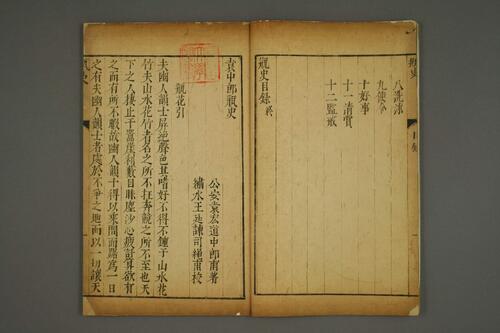 瓶史
目錄
八洗沐
九使令
十好事
十一清賞
十二監戒
瓶史目錄終
袁中郎瓶史
公安袁宏道中郎甫著
繡水王
甫校
瓶花引
夫幽人韻士屏絕聲色其嗜好不得不鍾于山水花
竹夫山水花竹者名之所不在奔競之所不至也天
下之人棲止于囂崖利藪目眯塵沙心疲計算欲有
之而有所不暇故幽人韻士得以乘間而踞為一日
之有夫幽人韻士者處於不爭之地而以一切讓天